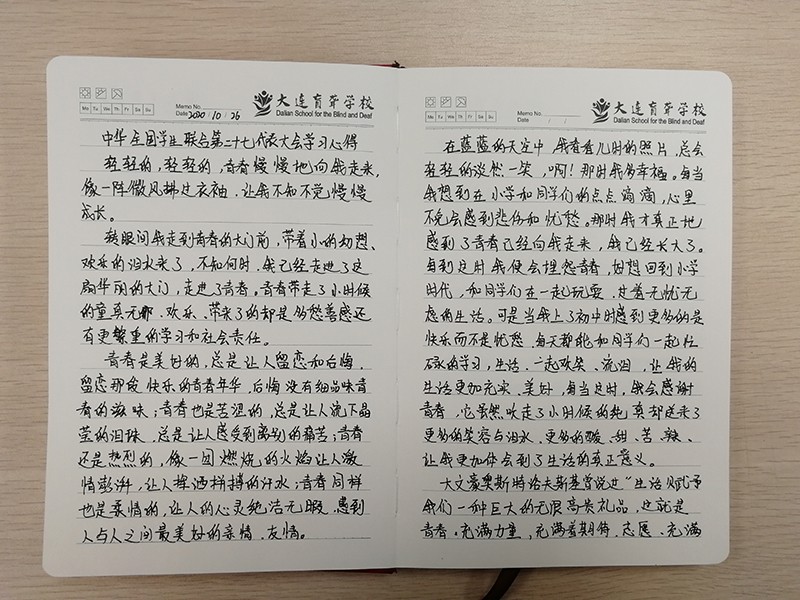 Mo Tu We Th Fr Sa Su
Memo No.
Date 2020 / 10 / 26
大连盲聋学校
Dalian School for the Blind and Deaf
中华全国学生联合第二十七代表大会学习心得
轻轻的，轻轻的，青春慢慢地向我走来，
像一阵微风拂过衣袖，让我不知不觉慢慢
成长。
转眼间我走到青春的大门前，带着小的幻想、
欢乐的泪水来了，不知何时，我已经走进了这
扇华丽的大门，走进了青春。青春带走了小时候
的童真无邪、欢乐、带来了的却是多愁善感还
有更繁重的学习和社会责任。
青春是美好的，总是让人留恋和后悔，
留恋那段快乐的青春年华，后悔没有细品味青
春的滋味；青春也是苦涩的，总是让人流下晶
莹的泪珠，总是让人感受到离别的痛苦；青春
还是热烈的，像一团燃烧的火焰让人激
情澎湃，让人挥洒拼搏的汗水；青春同样
也是柔情的，让人的心灵纯洁无暇，感到
人与人之间最美好的亲情、友情。
Mo Tu We Th Fr Sa Su
Memo No.
Date / /
大连盲聋学校
Dalian School for the Blind and Deaf
在蓝蓝的天空中，我看着儿时的照片，总会
轻轻的淡然一笑，啊！那时我多幸福。每当
我想到在小学和同学们的点点滴滴，心里
不免会感到悲伤和忧愁。那时我才真正地
感到了青春已经向我走来，我已经长大了。
每到这时我便会埋怨青春，想想回到小学
时代，和同学们在一起玩耍，过着无忧无
虑的生活。可是当我上了初中时感到更多的是
快乐而不是忧愁，每天都能和同学们一起忙
碌的学习，生活，一起欢笑、流泪，让我的
生活更加充实、美好，每当这时，我会感谢
青春，它虽然吹走了小时候的纯真却送来了
更多的笑容与泪水、更多的酸、甜、苦、辣、
让我更加体会到了生活的真正意义。
大文豪奥斯特洛夫斯基曾说过“生活赋予
我们一种巨大的无限高贵礼品，这就是
青春。充满力量，充满着期待，志愿、充满